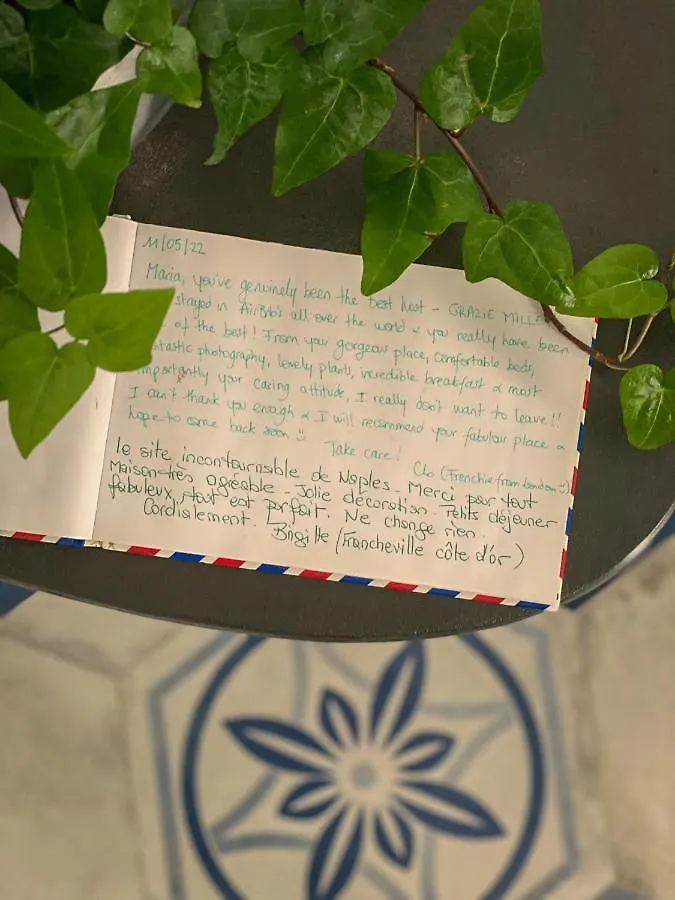 11/05/22
Maria, you've genuinely been the best host - GRAZIE MILLE
stayed in AirBnb's all over the world & you really have been
of the best! From your gorgeous place, comfortable beds,
photography, lovely plants, incredible breakfast & most
your caring attitude, I really don't want to leave!!
I can't thank you enough & I will recommend your fabulous place &
hope to come back soon :)
Take care!
Clo (Frenchie from London :))
le site incontournable de Naples. Merci pour tout
Maison très agréable - Jolie décoration - Petits déjeuner
fabuleux, tout est parfait. Ne change rien.
Cordialement. Brigitte (Francheville côte d'or)